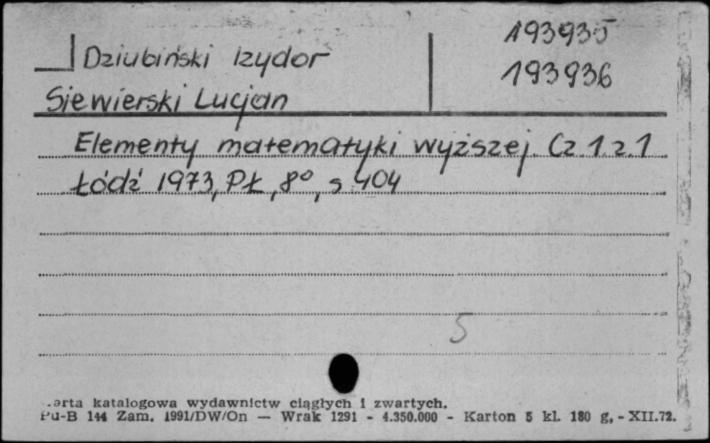 193935
Dziubiński Izydor
193936
Siewierski Lucjan
Elementy matematyki wyższej. Cz. 1. z. 1
Łódź 1973, PŁ, 8°, s 404
5
arta katalogowa wydawnictw ciągłych i zwartych.
Pu-B 144 Zam. 1991/DW/On — Wrak 1291 - 4.350.000 - Karton 5 kl. 180 g, - XII.72.